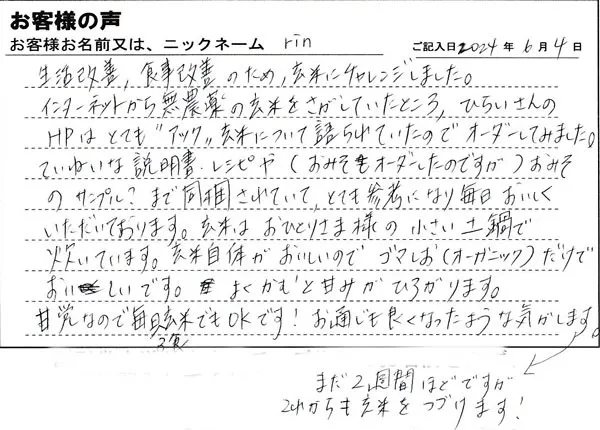 お客様の声
お客様お名前又は、ニックネーム rin ご記入日 2024 年 6 月 4 日
生活改善, 食事改善のため, 玄米にチャレンジしました。
インターネットから無農薬の玄米をさがしていたところ, ひらいさんの
HPはとても"アツク"玄米について語られていたのでオーダーしてみました。
ていねいな説明書・レシピや(おみそもオーダーしたのですが)おみそ
のサンプル?まで同梱されていて, とても参考になり毎日おいしく
いただいております。玄米はおひとりさま様の小さい土鍋で
炊いています。玄米自体がおいしいのでゴマしお(オーガニック)だけで
おいしいです。よくかむと甘みがひろがります。
甘党なので毎日3食玄米でもOKです! お通じも良くなったような気がします。
まだ2週間ほどですが
これからも玄米をつづけます!